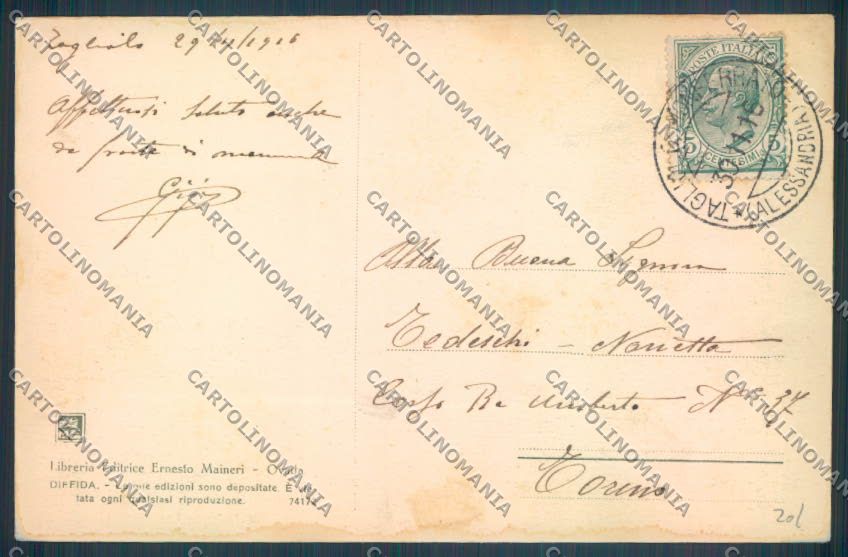 Tagliolo 29/4/1916
Affettuosi saluti anche
da parte di mamma
POSTE ITALIANE
5
CENTESIMI
TAGLIOLO MONFERRATO
(ALESSANDRIA)
30
Alla Buona Signora
Tedeschi - Norietta
Corso Re Umberto N° 37
Torino
Libreria Editrice Ernesto Maineri - Ovada
DIFFIDA. - Le mie edizioni sono depositate. È vie-
tata ogni qualsiasi riproduzione. 74172
201
CARTOLINOMANIA